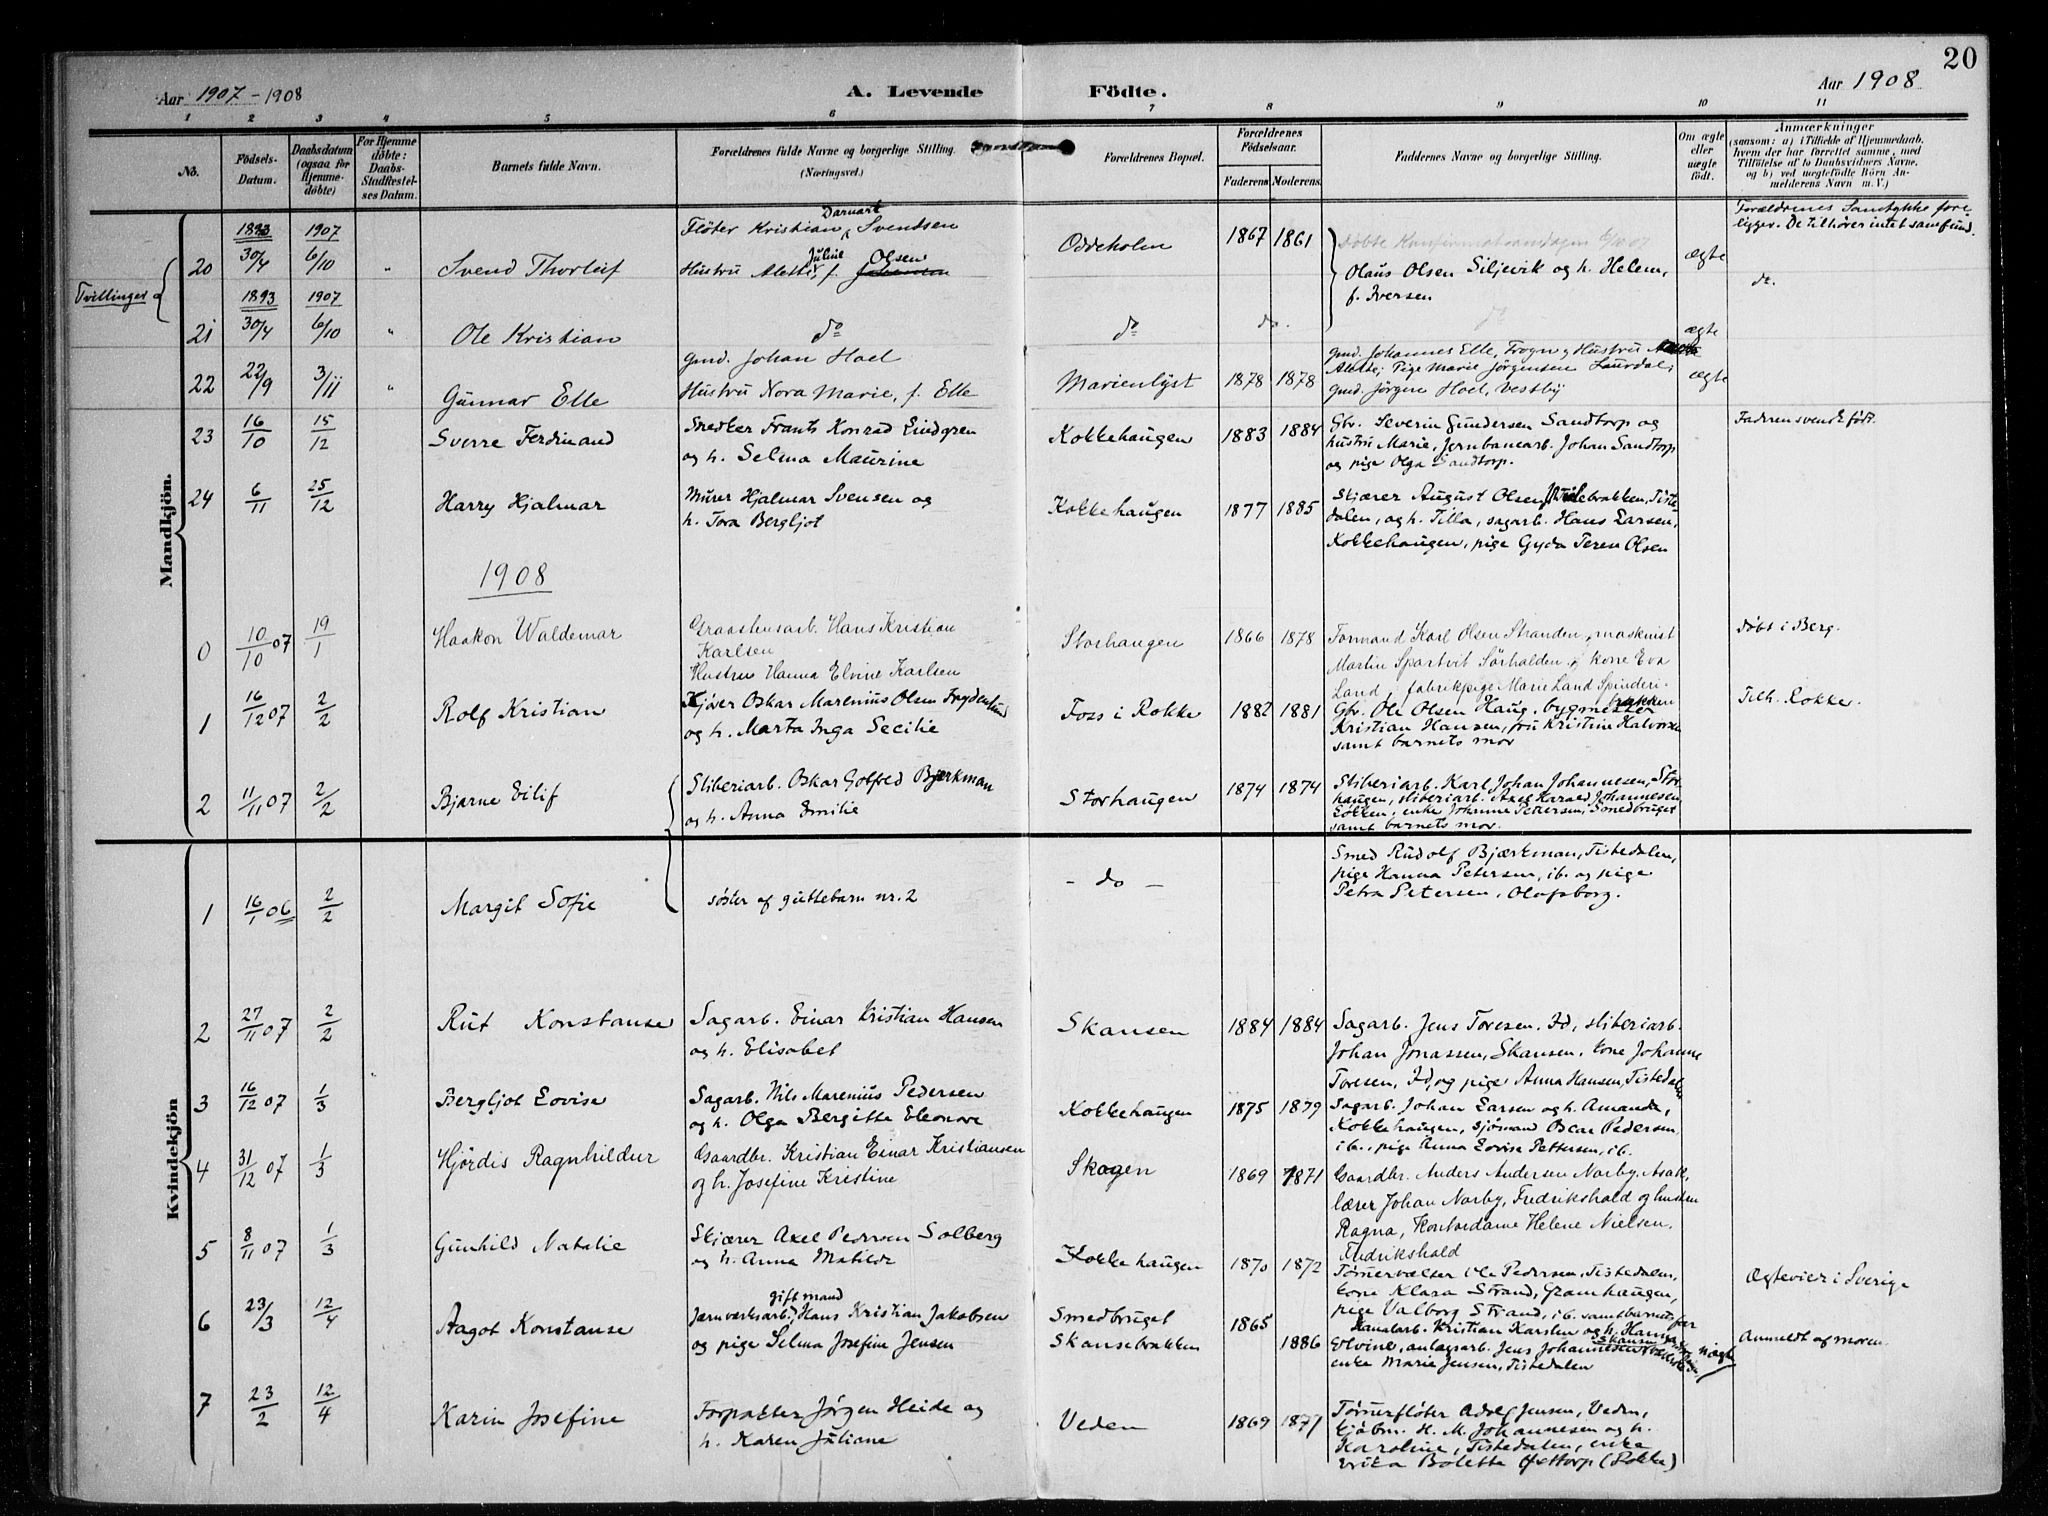 20
Aar 1907 - 1908
A. Levende Födte.
Aar 1908
1 2 3 4 5 6 7 8 9 10 11
No.
Födsels-Datum.
Daabsdatum (ogsaa for Hjemme-döbte)
For Hjemme döbte: Daabs-Stadfæstel-ses Datum.
Barnets fulde Navn.
Forældrenes fulde Navne og borgerlige Stilling.
(Næringsvei.)
Forældrenes Bopæl.
Forældrenes Födselsaar.
Faderens Moderens
Faddernes Navne og borgerlige Stilling.
Om ægte eller uægte födt.
Anmærkninger
(saasom: a) i Tilfælde af Hjemmedaab, hvem der har forrettet samme, med Tilföielse af to Daabsvidners Navne, og b) ved uegtefödte Börn An-melderens Navn m. V.)
Mandkjön.
Tvillinger
20 1893 30/4 1907 6/10 " Svend Thorleif
Fløter Kristian Danvart Svendsen
Hustru Alette Juline f. Olsen
Oddeholm 1867 1861
Døbte Konfirmationsdagen 6/10 07
Olaus Olsen Siljevik og h. Helene,
f. Iversen
ægte
Forældrenes Samtykke fore-
ligger. De tilhører intet samfund.
21 1893 30/4 1907 6/10 " Ole Kristian
do do do. do ægte do.
22 22/9 3/11 " Gunnar Elle
Gmd. Johan Hoel
Hustru Nora Marie, f. Elle
Marienlyst 1878 1878
Gmd. Johannes Elle, Frogn, Hustru
Alette; Pige Marie Jørgensen Laurdal;
Gmd. Jørgen Hoel, Vestby
ægte
23 16/10 15/12 Sverre Ferdinand
Snedker Frants Konrad Lindgren
og h. Selma Maurine
Kokkehaugen 1883 1884
Gbr. Severin Gundersen Sandtorp og
hustru Marie, Jernbanearb. Johan Sandtorp
og pige Olga Sandtorp.
Faderen svensk født.
24 6/11 25/12 Harry Hjalmar
Murer Hjalmar Svensen og
h. Tora Bergljot
Kokkehaugen 1877 1885
Skjærer August Olsen, Tiste-
dalen, og h. Tilla, sagarb. Hans Larsen,
Kokkehaugen, pige Gyda Teres Olsen
1908
0 10/10 07 19/1 Haakon Waldemar
Graashusarb. Hans Kristian
Karlsen
Hustru Hanna Elvine Karlsen
Storhaugen 1866 1878
Formand Karl Olsen Stranden, maskinist
Martin Spartvit Sørhalden, kone Eva
Land, fabrikpige Marie Land Spinderi-
bakken
Døbt i Berg.
1 16/12 07 2/2 Rolf Kristian
Kjører Oskar Marenius Olsen Frydenlund
og h. Marta Inga Secilie
Foss i Rokke 1882 1881
Gbr. Ole Olsen Haug, bygmester
Kristian Hansen, fru Kristine Halvorsen
samt barnets mor
Tilh. Rokke.
2 11/11 07 2/2 Bjarne Eilif
Sliberiarb. Oskar Golfred Bjerkman
og h. Anna Emilie
Storhaugen 1874 1874
Sliberiarb. Karl Johan Johannesen, Stor-
haugen, sliberiarb. Axel Harald Johannesen
Løkken, enke Johanne Pettersen, Smedbruget
samt barnets mor.
Kvindekjön
1 16/1 06 2/2 Margit Sofie
søster af guttebarn nr. 2
- do -
Smed Rudolf Bjærkman, Tistedalen,
pige Hanna Petersen, ib. og pige
Petra Petersen, Olafsborg.
2 27/11 07 2/2 Rut Konstanse
Sagarb. Einar Kristian Hansen
og h. Elisabet
Skansen 1884 1884
Sagarb. Jens Toresen, Id, sliberiarb.
Johan Jonassen, Skansen, kone Johanne
Toresen, Id, og pige Anna Hansen, Tistedalen
3 16/12 07 1/3 Bergljot Lovise
Sagarb. Nils Marenius Pedersen
og h. Olga Bergitte Eleonore
Kokkehaugen 1875 1879
Sagarb. Johan Larsen og h. Amanda,
Kokkehaugen, sjømand Oscar Pedersen,
ib., pige Anna Lovise Pettersen, ib.
4 31/12 07 1/3 Hjørdis Ragnhildur
Gaardbr. Kristian Einar Kristiansen
og h. Josefine Kristine
Skogen 1869 1871
Gaardbr. Anders Andersen Norby, Asak,
lærer Johan Norby, Fredrikshald og hustru
Ragna, Kontordame Helene Nielsen,
Fredrikshald
5 8/11 07 1/3 Gunhild Natalie
Skjærer Axel Pedersen Solberg
og h. Anna Matilde
Kokkehaugen 1870 1872
Tømmervælter Ole Pedersen, Tistedalen,
kone Klara Strand, Gramhaugen,
pige Valborg Strand, ib. samt barnets far
Ægtevier i Sverige
6 23/3 12/4 Aagot Konstanse
Jærnverksarb. gift mand Hans Kristian Jakobsen
og pige Selma Josefine Jensen
Smedbruget
Skansebakken
1865
1886
Kanalarb. Kristian Karsten og h. Hanna
Elvine, anlagsarb. Jens Johannesen
enke Marie Jensen, Tistedalen
uægte
Anmeldt af moren.
7 23/2 12/4 Karin Josefine
Forpakter Jørgen Heide og
h. Karen Juliane
Veden 1869 1877
Tømmerfløter Adolf Jensen, Veden,
kjøbm. H. M. Johannesen og h.
Karoline, Tistedalen, enke
Erika Bolette Øxtorp (Rokke)